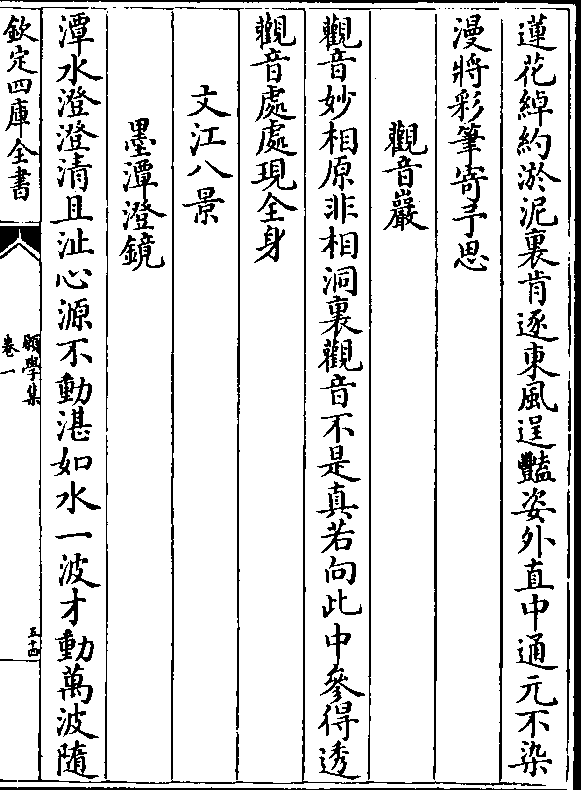 蓮花綽約淤泥裏肯逐東風逞豔姿外直中通元不染
漫將彩筆寄予思
觀音巖
觀音妙相原非相洞裏觀音不是真若向此中參得透
觀音處處現全身
文江八景
墨潭澄鏡
潭水澄澄清且沚心源不動湛如水一波才動萬波隨
欽定四庫全書
願學集
卷一
五十四